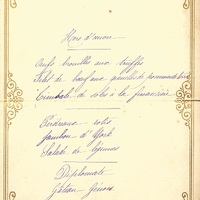 Hors d'œuvre
Œufs brouillés aux truffes
Filet de bœuf aux quenelles de pommes de terre
Timbale de soles à la financière
Bordeaux rôtis
Jambon d'York
Salade de légumes
Diplomate
Gâteau Génois